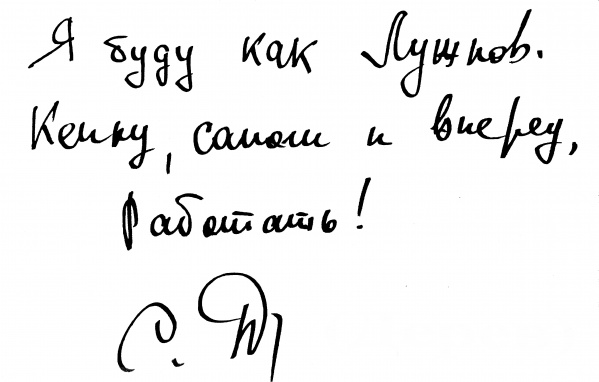 Я буду как Лужков.
Кепку, сапоги и вперед,
работать!
С.